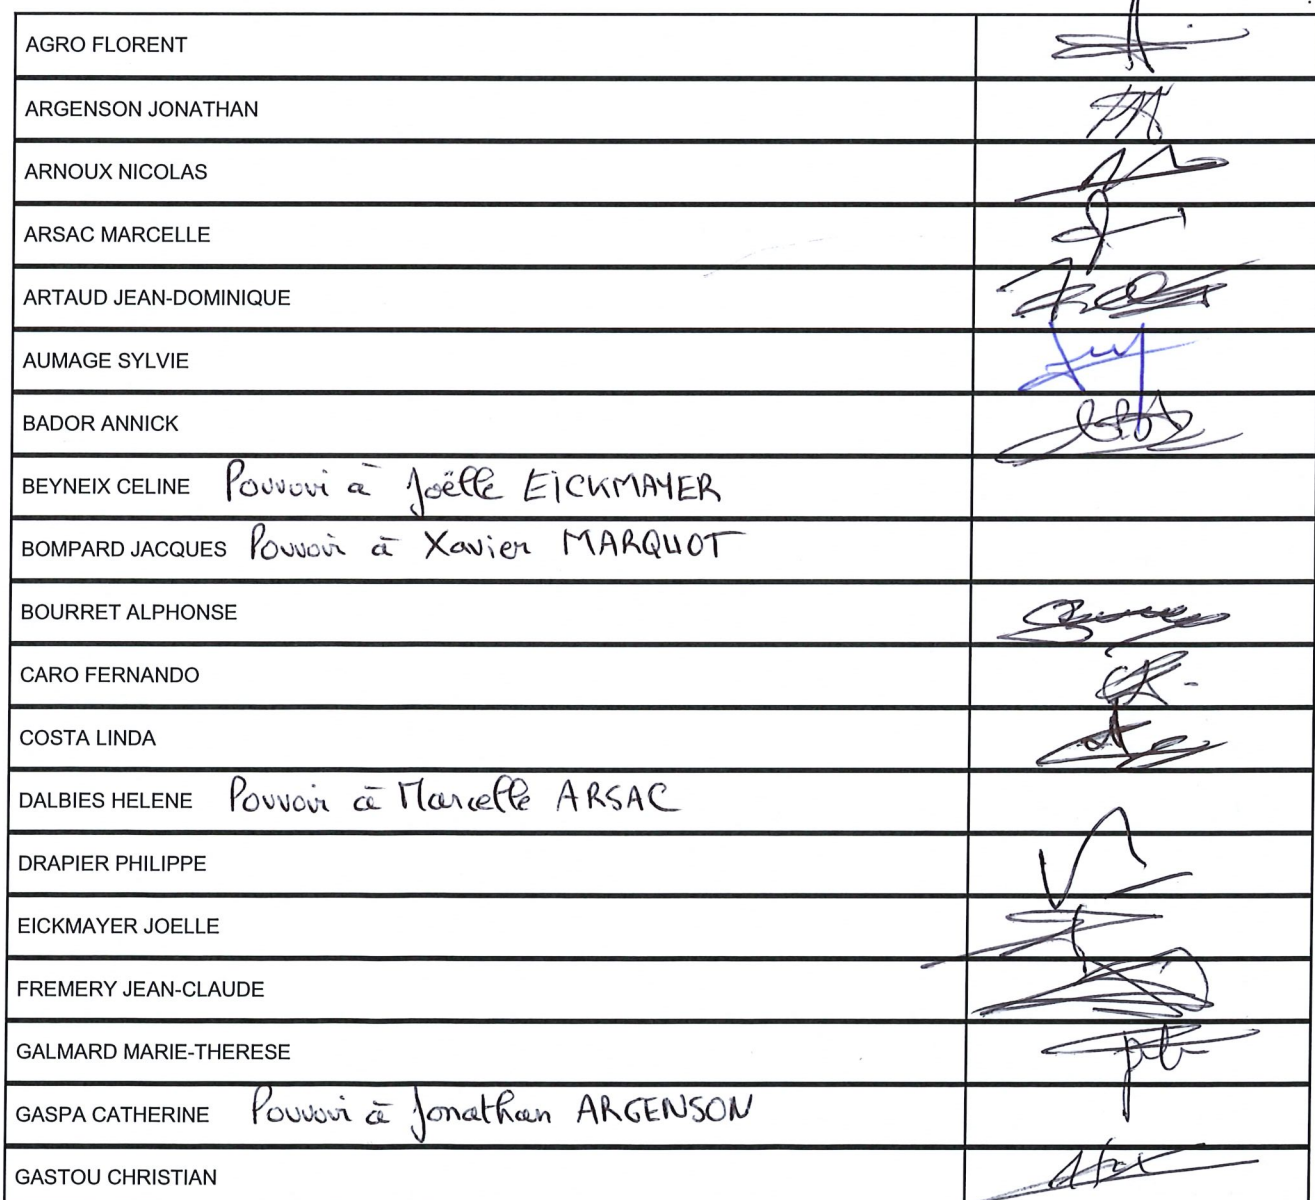 AGRO FLORENT
ARGENSON JONATHAN
ARNOUX NICOLAS
ARSAC MARCELLE
ARTAUD JEAN-DOMINIQUE
AUMAGE SYLVIE
BADOR ANNICK
BEYNEIX CELINE Pouvoir à Joëlle EICKMAYER
BOMPARD JACQUES Pouvoir à Xavier MARQUOT
BOURRET ALPHONSE
CARO FERNANDO
COSTA LINDA
DALBIES HELENE Pouvoir à Marcelle ARSAC
DRAPIER PHILIPPE
EICKMAYER JOELLE
FREMERY JEAN-CLAUDE
GALMARD MARIE-THERESE
GASPA CATHERINE Pouvoir à Jonathan ARGENSON
GASTOU CHRISTIAN